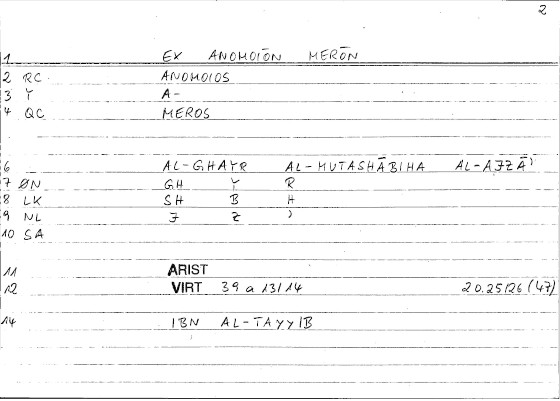 2
1 EX ANOMOIŌN MERŌN
2 RC ANOMOIOS
3 Y A-
4 QC MEROS
6 AL-GHAYR AL-MUTASHĀBIHA AL-AJZĀʾ
7 ØN GH Y R
8 LK SH B H
9 NL J Z ʾ
10 SA
11 ARIST
12 VIRT 39 a 13/14 20.25/26 (47)
14 IBN AL-TAYYIB